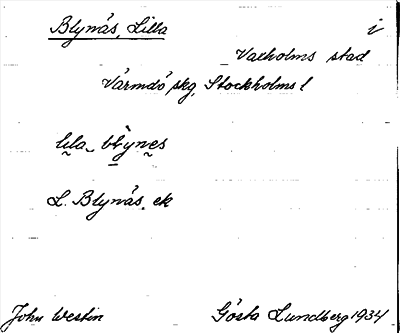 Blynäs, Lilla i
Vaxholms stad
Värmdö skg, Stockholms l
lila blynes
L. Blynäs. ek
John Westin Gösta Lundberg 1934